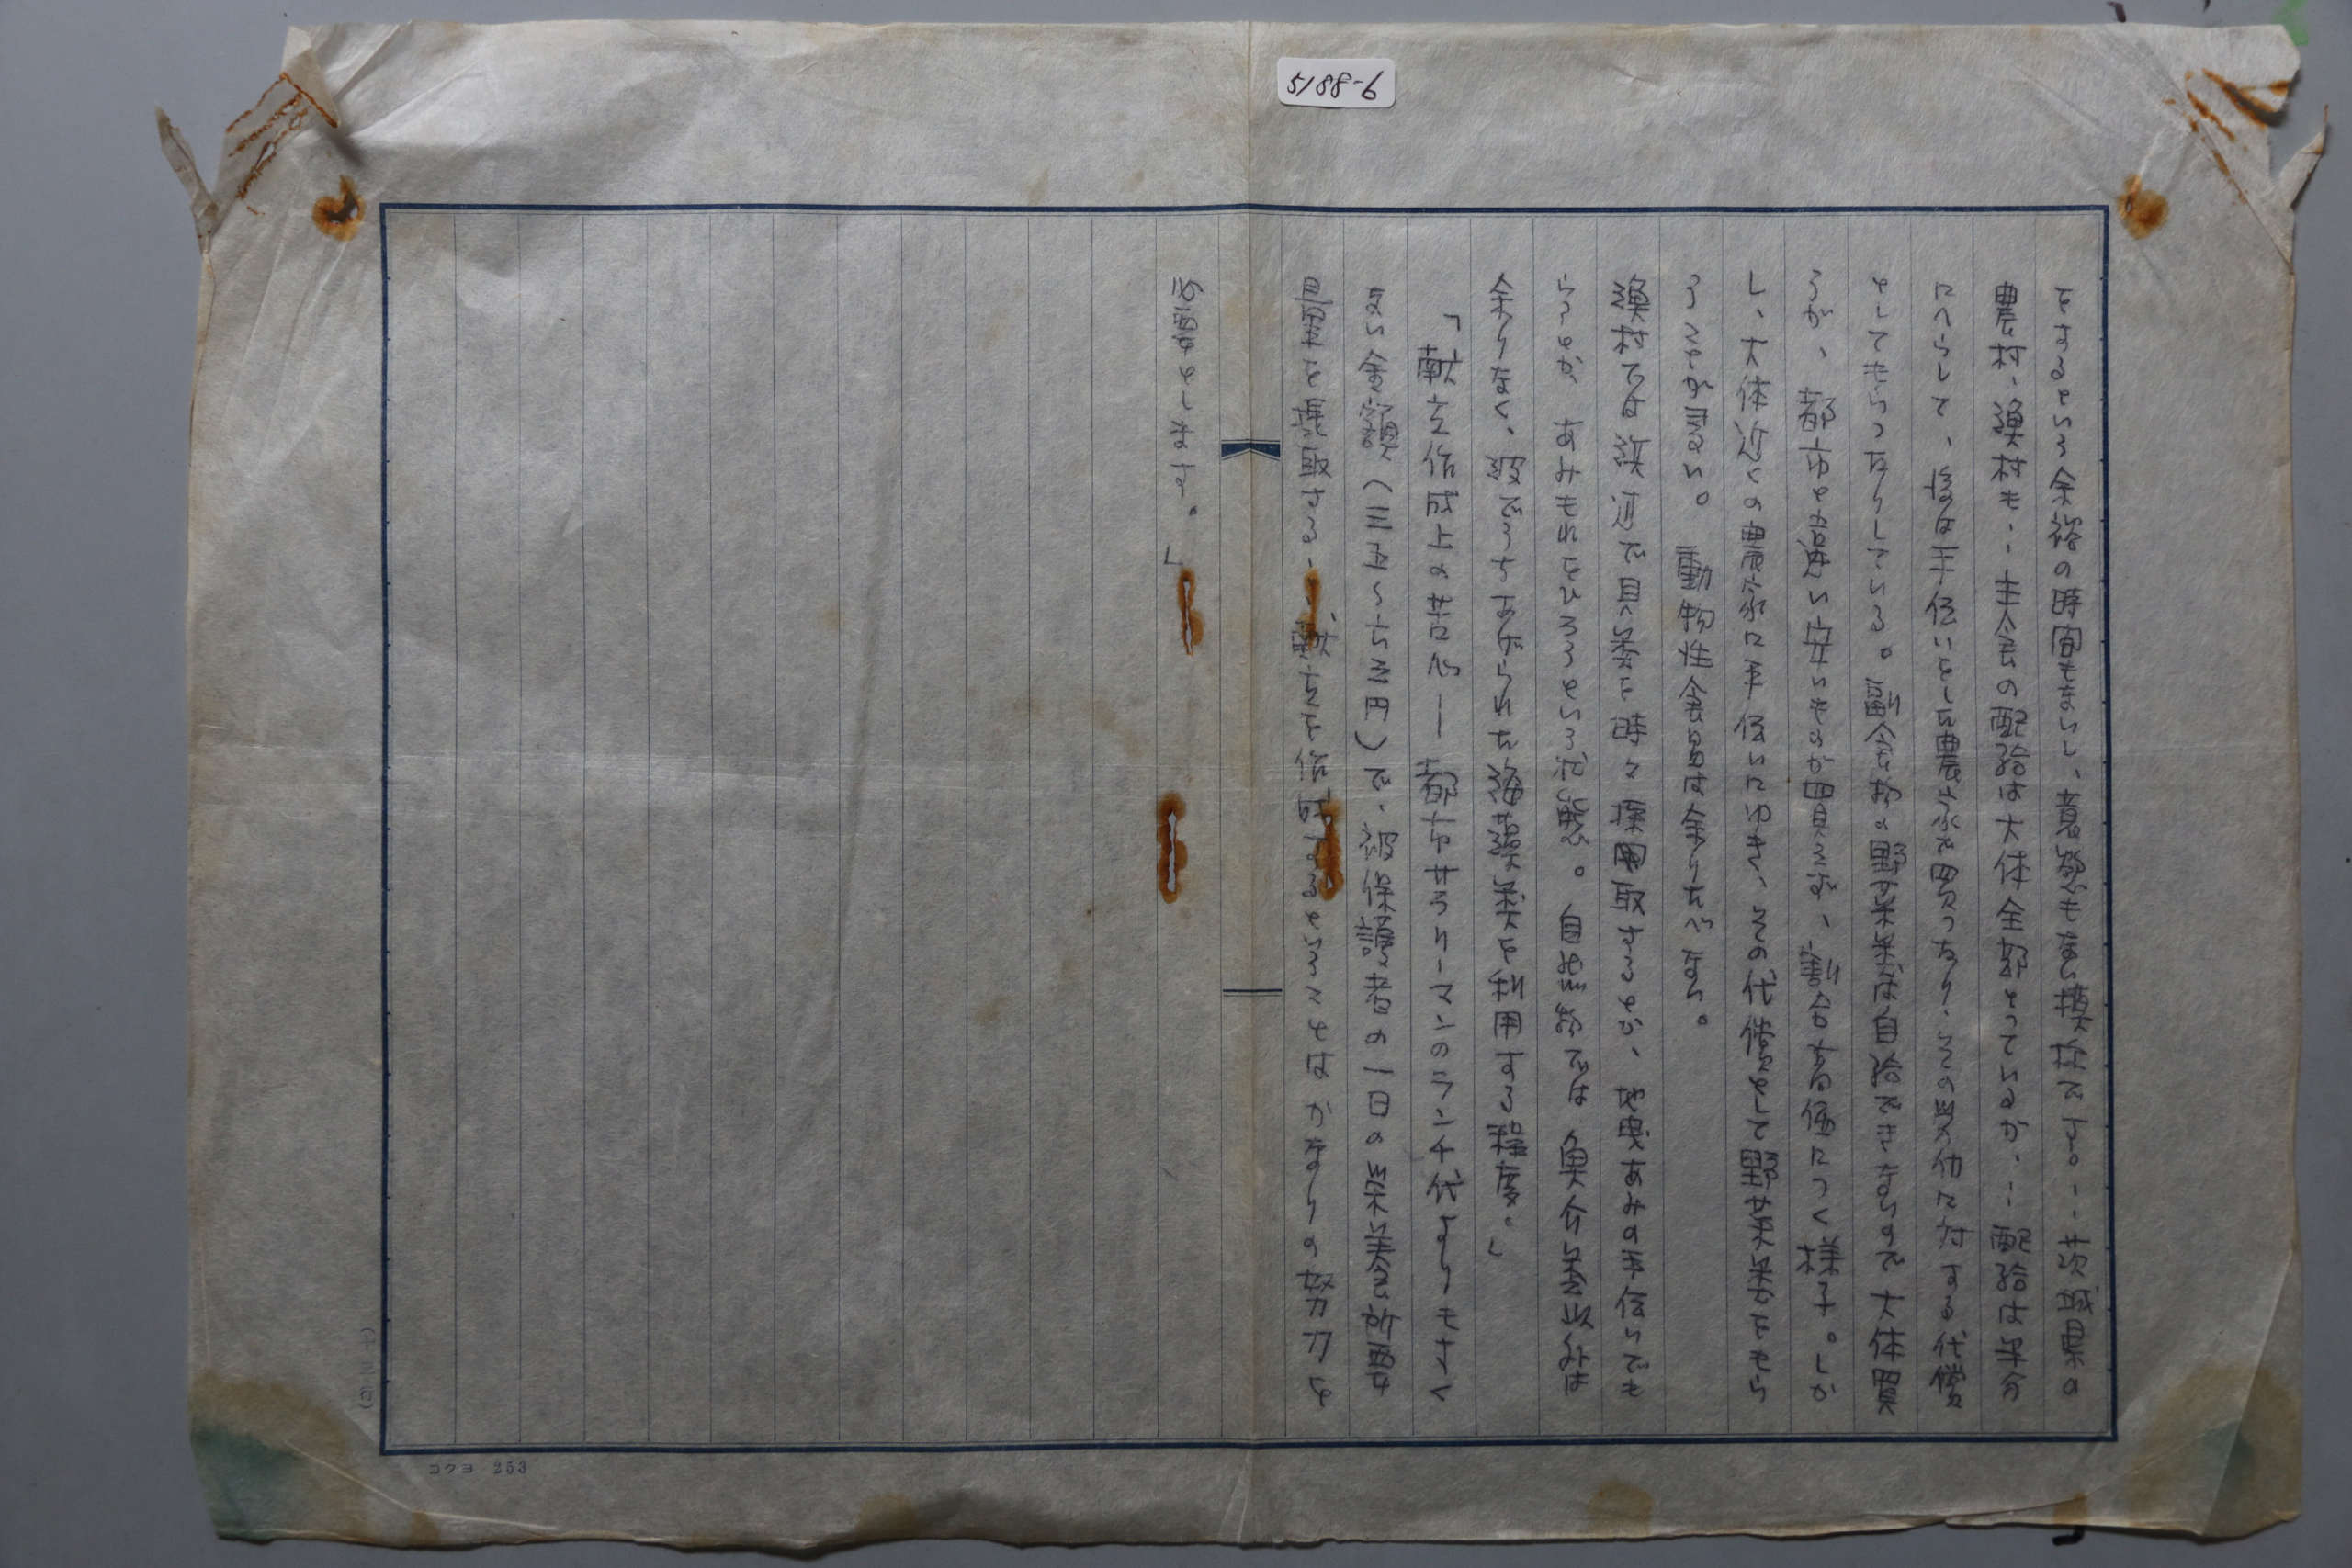 5188-6
をするという余裕の時間もないし、意慾もない模様です。‥茨城県の
農村、漁村も‥主食の配給は大体全部とっているが、‥配給は半分
にへらして、後は手伝いをした農家で買ったり、その労仂に対する代償
としてもらったりしている。副食物の野菜等は自給できないので大体買
うが、都市と違い安いものが買えず、割合高価につく様子。しか
し、大体近くの農家に手伝いにゆき、その代償として野菜等をもら
うことが多い。動物性食品は余りたべない。
漁村では浜辺で貝類を時々採取するとか、地曳あみの手伝いでも
らうとか あみもれをひろうという状態。自然物では魚介類以外は
余りなく、波でうちあげられた海藻類を利用する程度。」
「献立作成上の苦心――都市サラリーマンのランチ代よりもすく
ない金額（三五～六三円）で、被保護者の一日の栄養所要
量を摂取する‥献立を作成するということはかなりの努力を
必要とします。」
コクヨ 253